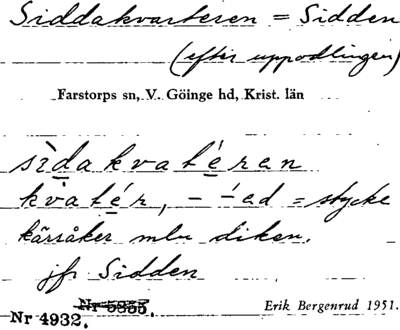 Siddakvarteren = Sidden
(efter uppodlingen)
Farstorps sn, V. Göinge hd, Krist. län
sìdakvatéren
kvatér, – -ed = stycke
kärråker mln diken.
jfr Sidden
Nr 5355.
Erik Bergenrud 1951.
Nr 4932.